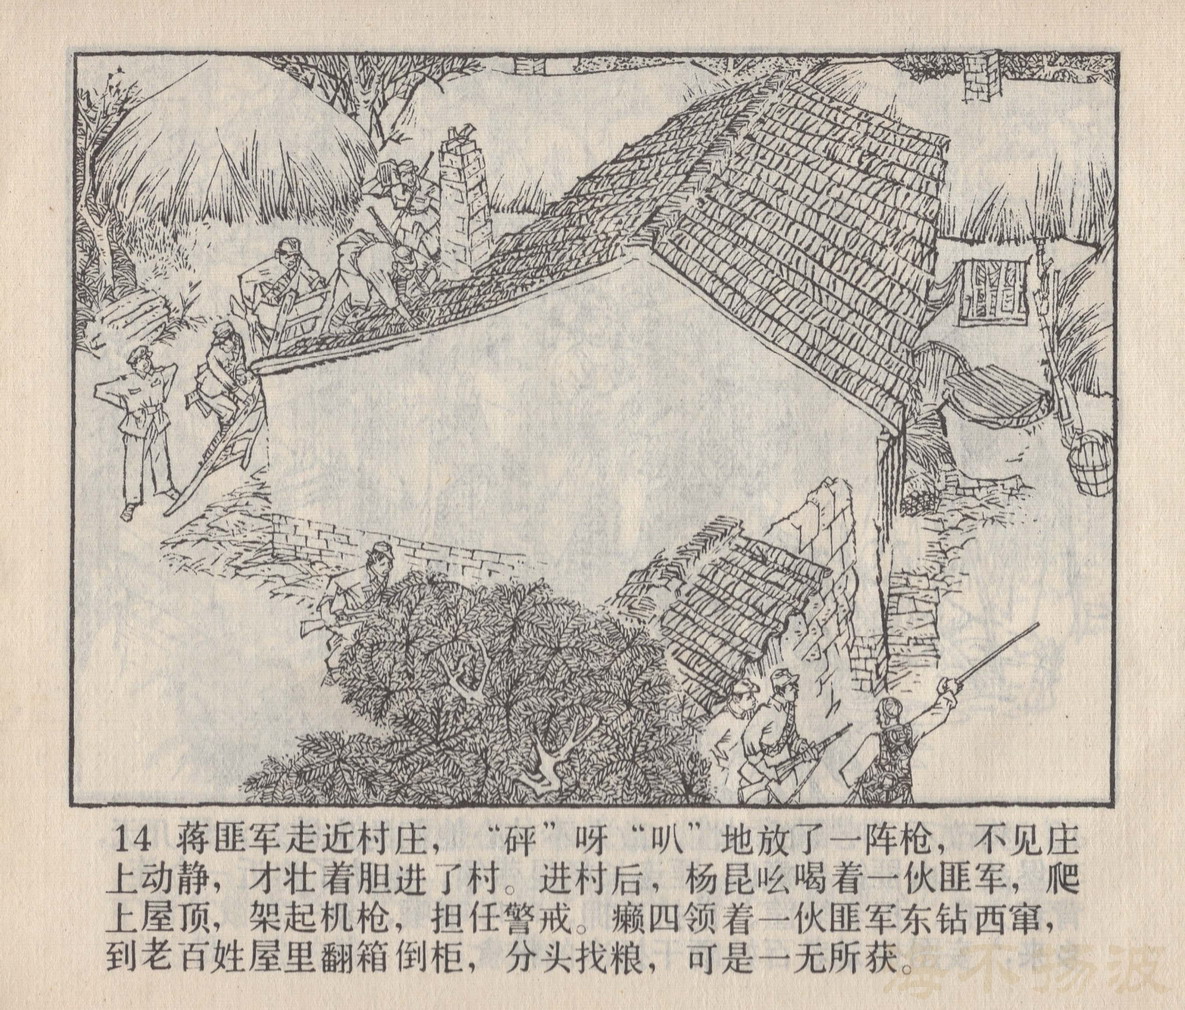 14 蒋匪军走近村庄，“砰”呀“叭”地放了一阵枪，不见庄
上动静，才壮着胆进了村。进村后，杨昆吆喝着一伙匪军，爬
上屋顶，架起机枪，担任警戒。癞四领着一伙匪军东钻西窜，
到老百姓屋里翻箱倒柜，分头找粮，可是一无所获。
海不扬波